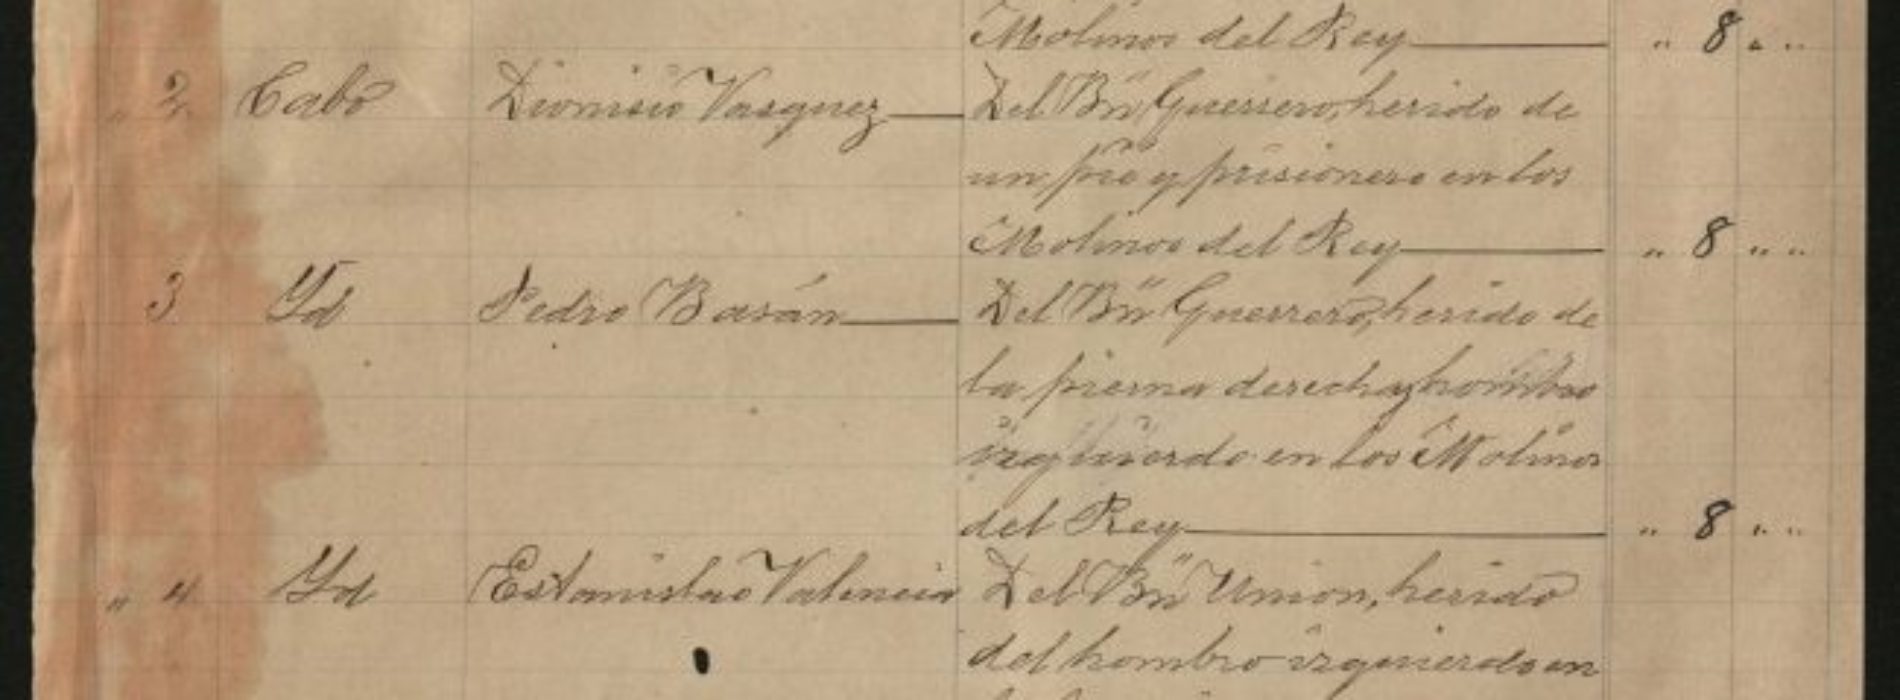 Molinos del Rey " 8 " "
" 2 Cabo Dionisio Vasquez Del Bn Guerrero, herido de
un pie y prisionero en los
Molinos del Rey " 8 " "
3 Yd Pedro Basán Del Bn Guerrero, herido de
la pierna derecha y hombro
izquierdo en los Molinos
del Rey " 8 " "
" 4 Yd Estanislao Valencia Del Bn Union, herido
del hombro izquierdo en